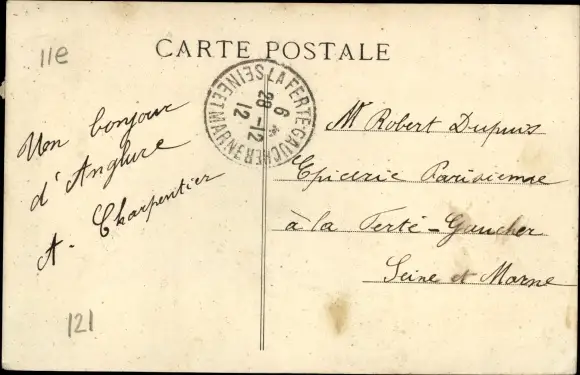 11e
CARTE POSTALE
LA FERTE-GAUCHER
SEINE ET MARNE
6 *
28 -12
12
Un bonjour
d'Anglure
A. Charpentier
Mr Robert Dupuis
Epicerie Parisienne
à la Ferté-Gaucher
Seine et Marne
121